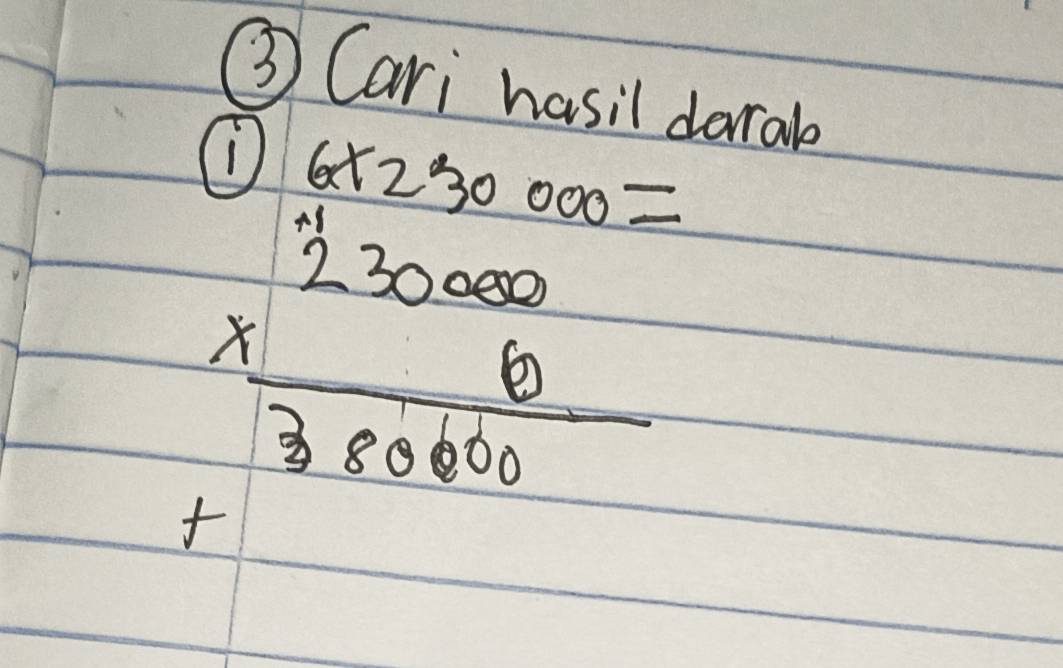 ③ Cari hasil darab
① 6x230 000 =
+1
230000
x 6
380000
+